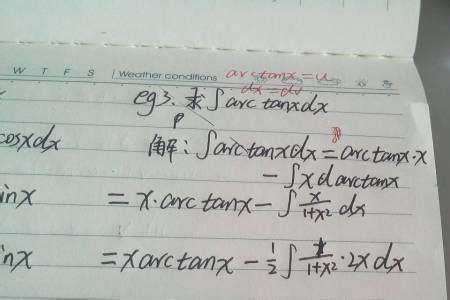 W T F S Weather conditions
arctanx=u
dx=dv
eg3. 求∫arctanxdx
cosxdx
解: ∫arctanxdx=arctanx·x
-∫xdarctanx
inx
=x·arctanx-∫x/1+x² dx
inx
=xarctanx-1/2∫1/1+x²·2xdx